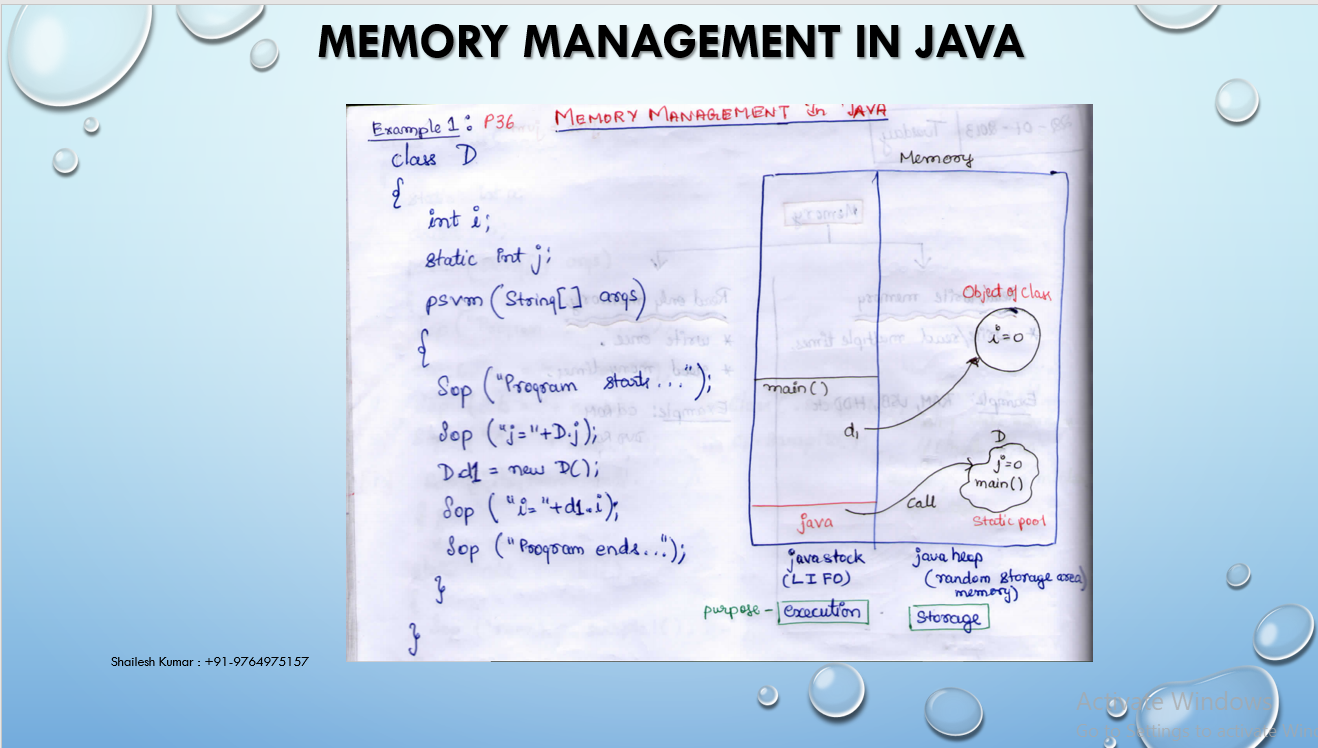 MEMORY MANAGEMENT IN JAVA
Example 1: P36 MEMORY MANAGEMENT in JAVA
class D
{
int i;
static int j;
psvm (String[] args)
{
Sop ("Program starts...");
Sop ("j="+D.j);
D d1 = new D();
Sop ("i="+d1.i);
Sop ("Program ends...");
}
}
Memory
Object of class
i=0
main()
d1
D
j=0
main()
call
java
Static pool
java stack
(LIFO)
java heap
(random storage area)
memory)
purpose - execution
Storage
Shailesh Kumar : +91-9764975157
Activate Windows